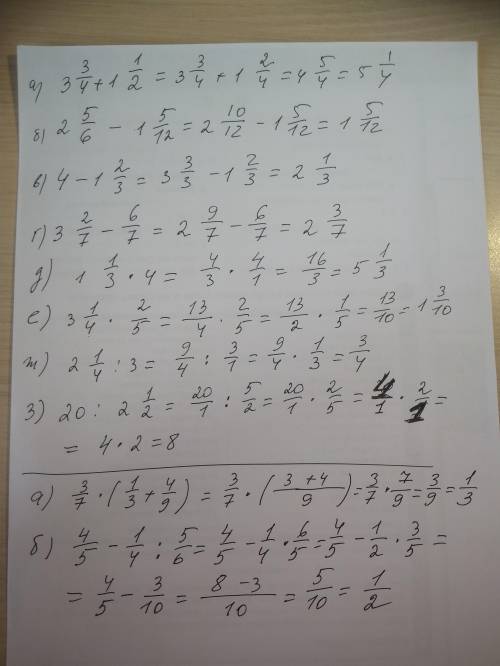 а) 3 3/4 + 1 1/2 = 3 3/4 + 1 2/4 = 4 5/4 = 5 1/4
б) 2 5/6 - 1 5/12 = 2 10/12 - 1 5/12 = 1 5/12
в) 4 - 1 2/3 = 3 3/3 - 1 2/3 = 2 1/3
г) 3 2/7 - 6/7 = 2 9/7 - 6/7 = 2 3/7
д) 1 1/3 · 4 = 4/3 · 4/1 = 16/3 = 5 1/3
е) 3 1/4 · 2/5 = 13/4 · 2/5 = 13/2 · 1/5 = 13/10 = 1 3/10
ж) 2 1/4 : 3 = 9/4 : 3/1 = 9/4 · 1/3 = 3/4
з) 20 : 2 1/2 = 20/1 : 5/2 = 20/1 · 2/5 = 4/1 · 2/1 =
= 4 · 2 = 8
а) 3/7 · (1/3 + 4/9) = 3/7 · (3+4/9) = 3/7 · 7/9 = 3/9 = 1/3
б) 4/5 - 1/4 : 5/6 = 4/5 - 1/4 · 6/5 = 4/5 - 1/2 · 3/5 =
= 4/5 - 3/10 = 8-3/10 = 5/10 = 1/2